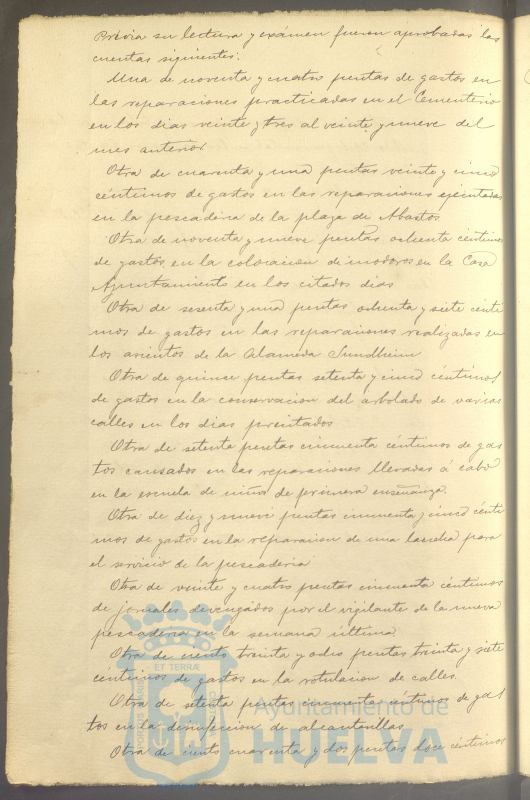 Prévia su lectura y exámen fueron aprobadas las
cuentas siguientes:
Una de noventa y cuatro pesetas de gastos en
las reparaciones practicadas en el Cementerio
en los dias veinte y tres al veinte y nueve del
mes anterior
Otra de cuarenta y una pesetas veinte y cinco
céntimos de gastos en las reparaciones ejecutadas
en la pescaderia de la plaza de Abastos
Otra de noventa y nueve pesetas ochenta céntimos
de gastos en la colocacion de inodoros en la Casa
Ayuntamiento en los citados dias
Otra de sesenta y una pesetas ochenta y siete cénti
mos de gastos en las reparaciones realizadas en
los asientos de la Alameda Sundheim
Otra de quince pesetas setenta y cinco céntimos
de gastos en la conservacion del arbolado de varias
calles en los dias precitados
Otra de setenta pesetas cincuenta céntimos de gas
tos causados en las reparaciones llevadas á cabo
en la escuela de niños de primera enseñanza.
Otra de diez y nueve pesetas cincuenta y cinco cénti
mos de gastos en la reparacion de una lancha para
el servicio de la pescaderia
Otra de veinte y cuatro pesetas cincuenta céntimos
de jornales devengados por el vigilante de la nueva
pescaderia en la semana última.
Otra de ciento treinta y ocho pesetas treinta y siete
céntimos de gastos en la rotulacion de calles.
Otra de setenta pesetas cincuenta céntimos de gas
tos en la desinfeccion de alcantarillas
Otra de ciento cuarenta y dos pesetas doce céntimos
ET TERRÆ
Ayuntamiento de
HUELVA